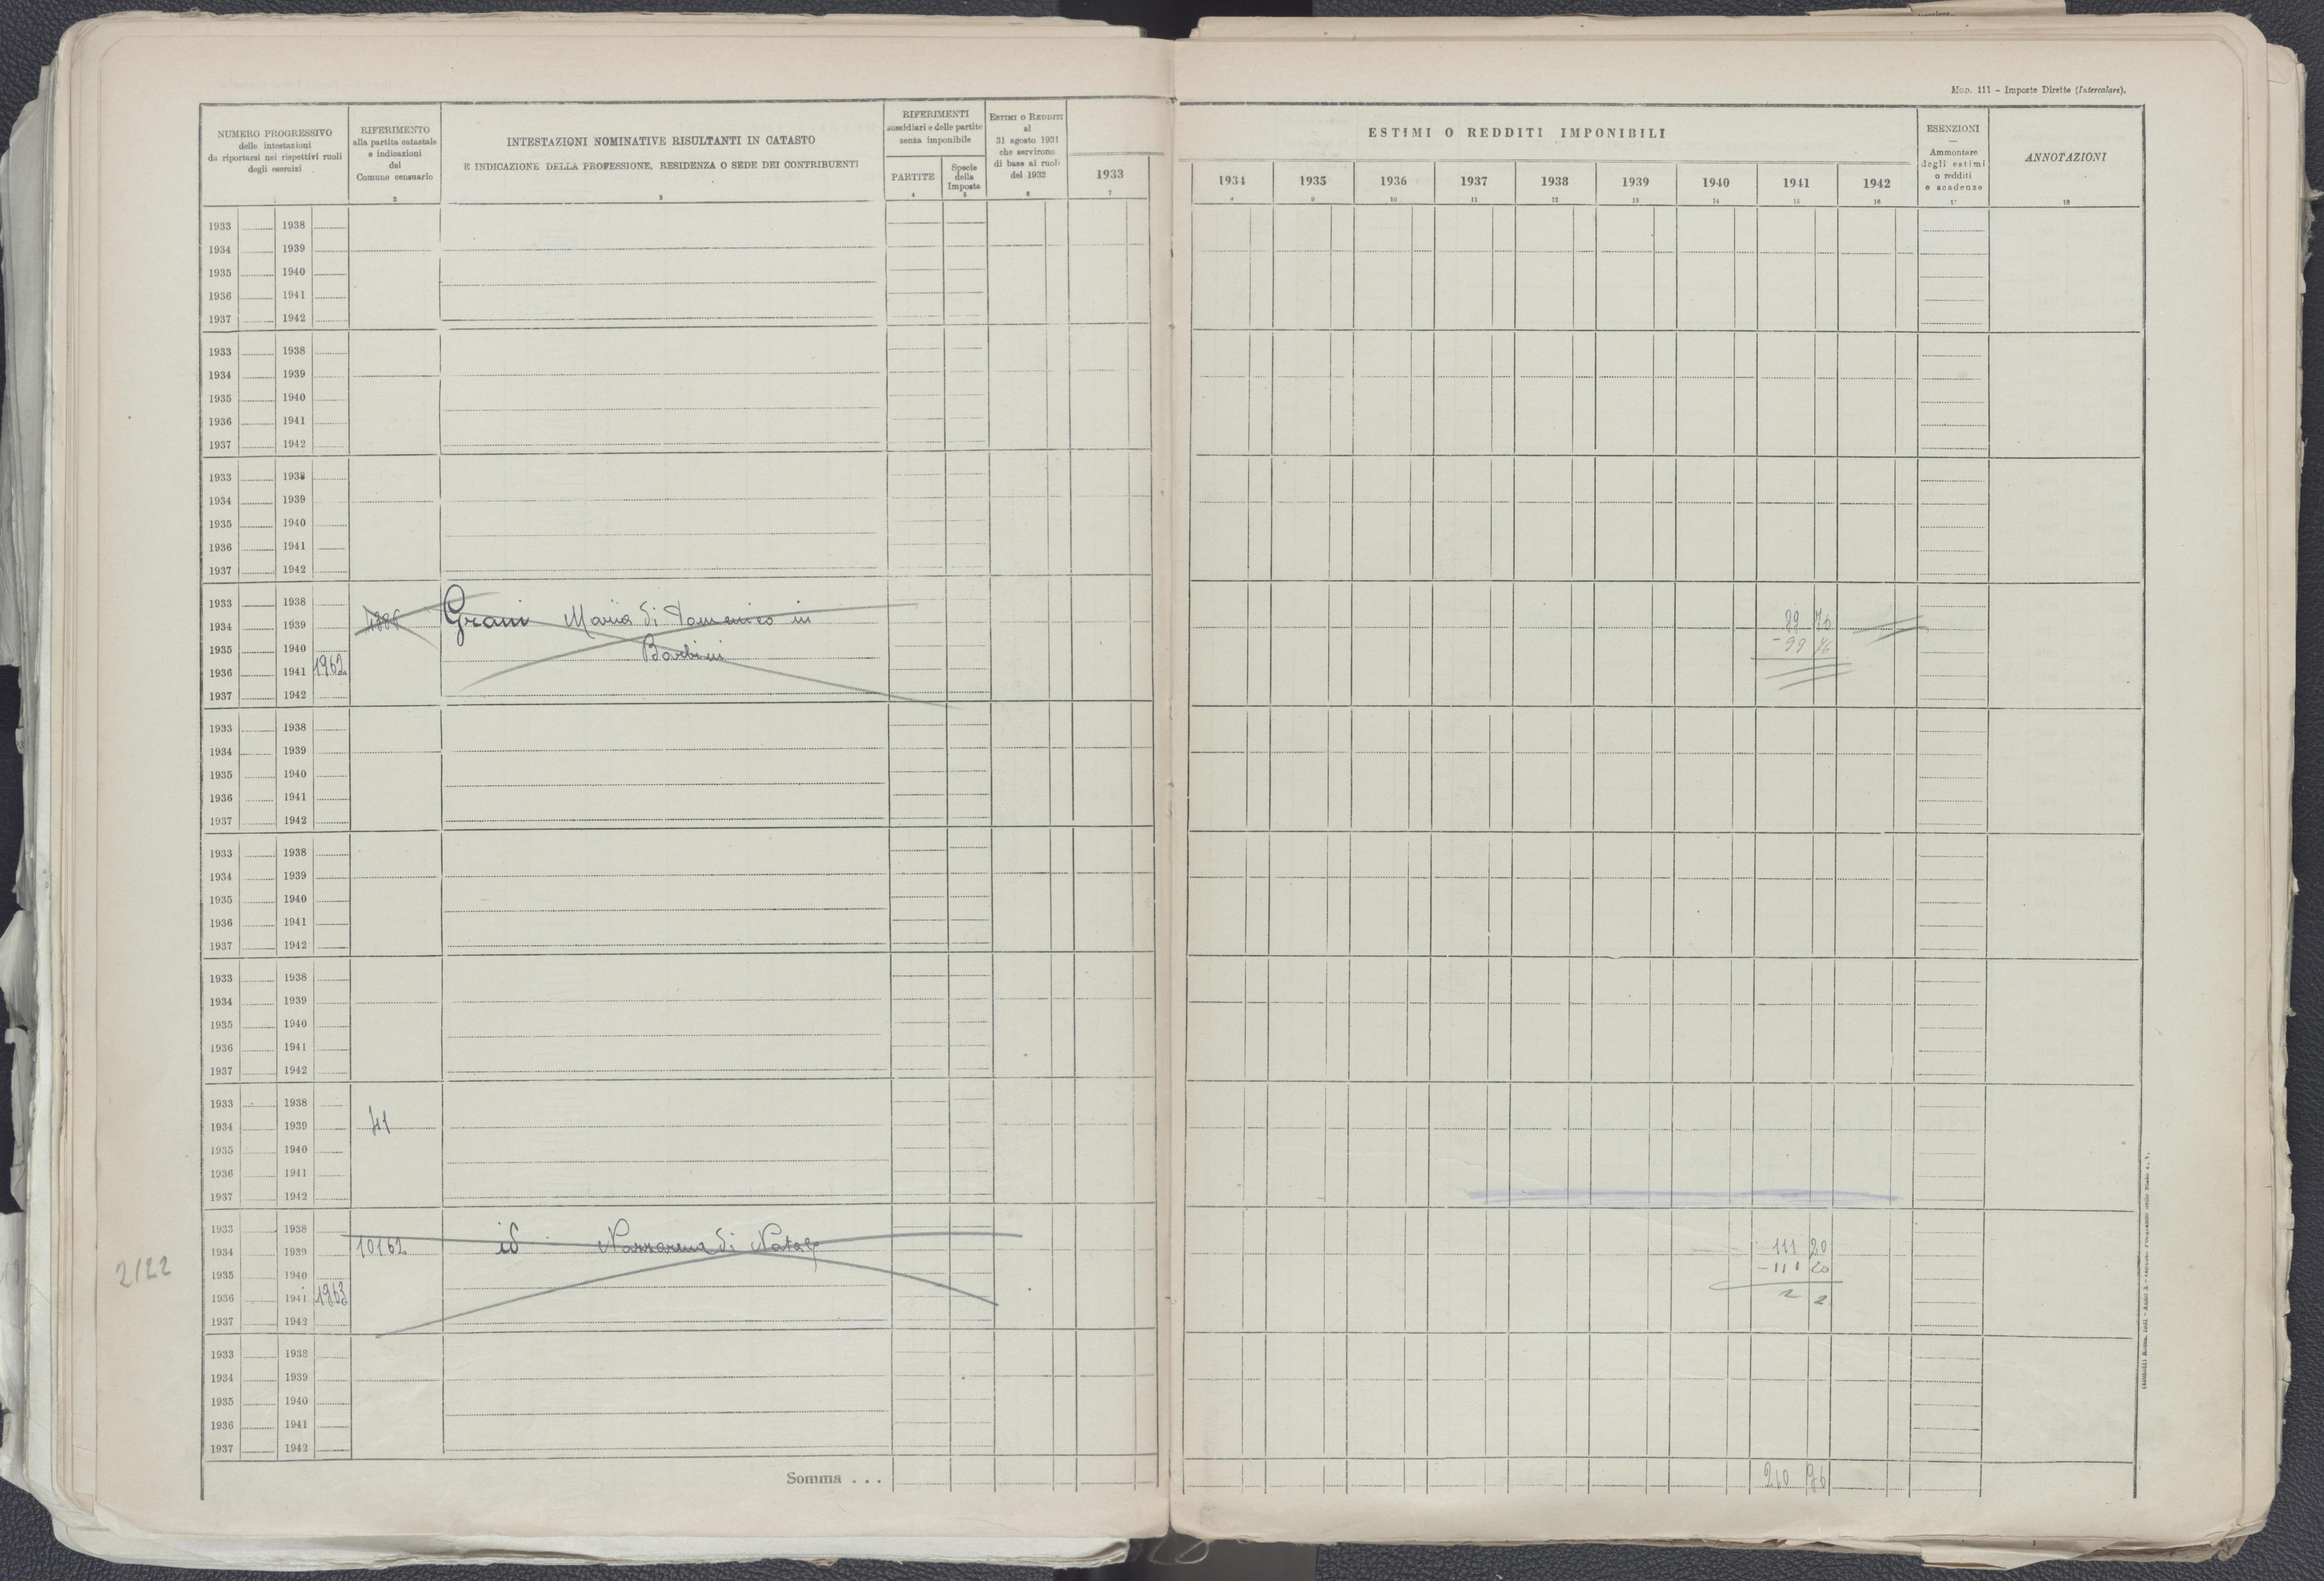 Mod. 111 - Imposte Dirette (Intercalare).
NUMERO PROGRESSIVO
delle intestazioni
da riportarsi nei rispettivi ruoli
degli esercizi
RIFERIMENTO
alla partita catastale
e indicazioni
del
Comune censuario
2
INTESTAZIONI NOMINATIVE RISULTANTI IN CATASTO
E INDICAZIONE DELLA PROFESSIONE, RESIDENZA O SEDE DEI CONTRIBUENTI
3
RIFERIMENTI
sussidiari e delle partite
senza imponibile
PARTITE
4
Specie
della
Imposta
5
ESTIMI O REDDITI
al
31 agosto 1931
che servirono
di base ai ruoli
del 1932
6
1933
7
ESTIMI O REDDITI IMPONIBILI
1934 1935 1936 1937 1938 1939 1940 1941 1942
8 9 10 11 12 13 14 15 16
ESENZIONI
Ammontare
degli estimi
o redditi
e scadenze
17
ANNOTAZIONI
18
1933 1938
1934 1939
1935 1940
1936 1941
1937 1942
1933 1938
1934 1939
1935 1940
1936 1941
1937 1942
1933 1938
1934 1939
1935 1940
1936 1941
1937 1942
1933 1938
1934 1939 Grani Maria di Domenico in 99 76
1935 1940 Barbini - 99 76
1936 1941 1962
1937 1942
1933 1938
1934 1939
1935 1940
1936 1941
1937 1942
1933 1938
1934 1939
1935 1940
1936 1941
1937 1942
1933 1938
1934 1939
1935 1940
1936 1941
1937 1942
1933 1938
1934 1939 41
1935 1940
1936 1941
1937 1942
1933 1938
1934 1939 10162 id Nazzarena di Natale 111 20
2122
1935 1940 - 111 20
1936 1941 1963 2 2
1937 1942
1933 1938
1934 1939
1935 1940
1936 1941
1937 1942
Somma . . . 210 96